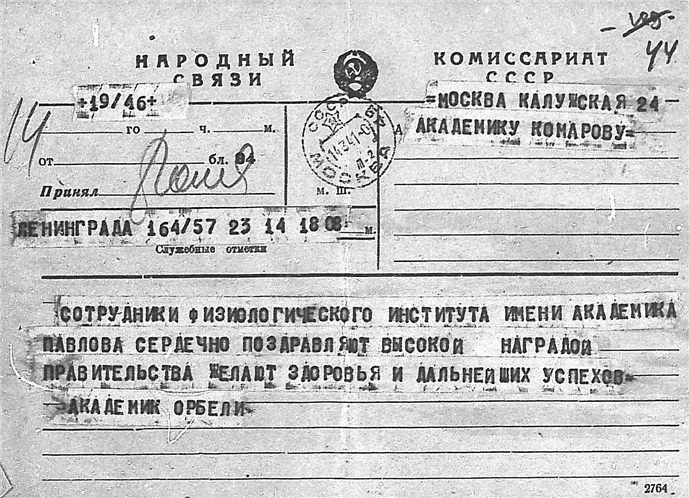 44
НАРОДНЫЙ КОМИССАРИАТ
СВЯЗИ СССР
+19/46+
14
го ч. м.
от бл. 94
Принял
м. ш.
СССР
МОСКВА
=МОСКВА КАЛУЖСКАЯ 24
А
АКАДЕМИКУ КОМАРОВУ=
ЛЕНИНГРАДА 164/57 23 14 18 08 м.
Служебные отметки
СОТРУДНИКИ ФИЗИОЛОГИЧЕСКОГО ИНСТИТУТА ИМЕНИ АКАДЕМИКА
ПАВЛОВА СЕРДЕЧНО ПОЗДРАВЛЯЮТ ВЫСОКОЙ НАГРАДОЙ
ПРАВИТЕЛЬСТВА ЖЕЛАЮТ ЗДОРОВЬЯ И ДАЛЬНЕЙШИХ УСПЕХОВ=
=АКАДЕМИК ОРБЕЛИ=
2764